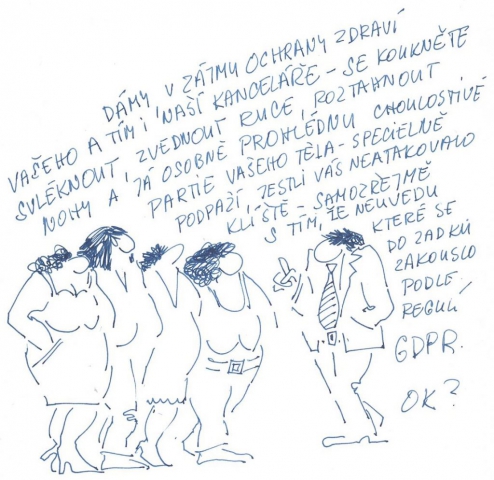 DÁMY V ZÁJMU OCHRANY ZDRAVÍ
VAŠEHO A TÍM I NAŠÍ KANCELÁŘE - SE KOUKNĚTE
SVLÉKNOUT, ZVEDNOUT RUCE, ROZTAHNOUT
NOHY A JÁ OSOBNĚ PROHLÉDNU CHOULOSTIVÉ
PARTIE VAŠEHO TĚLA - SPECIELNĚ
PODPAŽÍ, JESTLI VÁS NEATAKOVALO
KLÍŠTĚ - SAMOZŘEJMĚ
S TÍM, ŽE NEUVEDU
KTERÉ SE
DO ZADKU
ZAKOUSLO
PODLE
REGULÍ
GDPR.
OK?